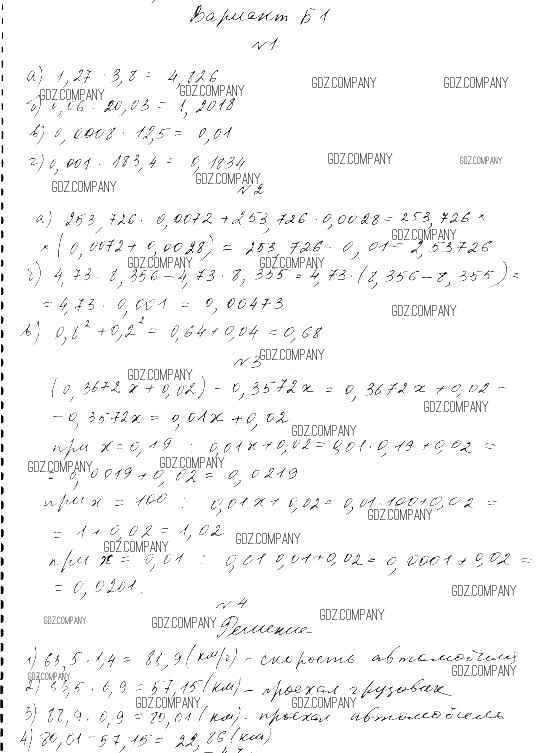 Вариант Б1
№1
а) 1,27 · 3,8 = 4,826
GDZ.COMPANY GDZ.COMPANY GDZ.COMPANY GDZ.COMPANY
б) 0,06 · 20,03 = 1,2018
в) 0,0008 · 12,5 = 0,01
г) 0,001 · 183,4 = 0,1834
GDZ.COMPANY GDZ.COMPANY
GDZ.COMPANY GDZ.COMPANY
№2
а) 253,726 · 0,0072 + 253,726 · 0,0028 = 253,726 ×
GDZ.COMPANY
× (0,0072 + 0,0028) = 253,726 · 0,01 = 2,53726
GDZ.COMPANY GDZ.COMPANY
б) 4,73 · 8,356 - 4,73 · 8,355 = 4,73 · (8,356 - 8,355) =
= 4,73 · 0,001 = 0,00473
GDZ.COMPANY
в) 0,8² + 0,2² = 0,64 + 0,04 = 0,68
№3
GDZ.COMPANY
GDZ.COMPANY
(0,3672x + 0,02) - 0,3572x = 0,3672x + 0,02 -
GDZ.COMPANY
- 0,3572x = 0,01x + 0,02
GDZ.COMPANY
при x = 0,19 : 0,01x + 0,02 = 0,01 · 0,19 + 0,02 =
GDZ.COMPANY GDZ.COMPANY
= 0,0019 + 0,02 = 0,0219
при x = 100 : 0,01x + 0,02 = 0,01 · 100 + 0,02 =
GDZ.COMPANY
= 1 + 0,02 = 1,02
GDZ.COMPANY GDZ.COMPANY
при x = 0,01 : 0,01 · 0,01 + 0,02 = 0,0001 + 0,02 =
= 0,0201.
GDZ.COMPANY
№4
GDZ.COMPANY GDZ.COMPANY GDZ.COMPANY
Решение
1) 63,5 · 1,4 = 88,9 (км/ч) - скорость автомобиля
GDZ.COMPANY GDZ.COMPANY
2) 63,5 · 0,9 = 57,15 (км) - проехал грузовик
GDZ.COMPANY GDZ.COMPANY
3) 88,9 · 0,9 = 80,01 (км) - проехал автомобиль
4) 80,01 - 57,15 = 22,86 (км)